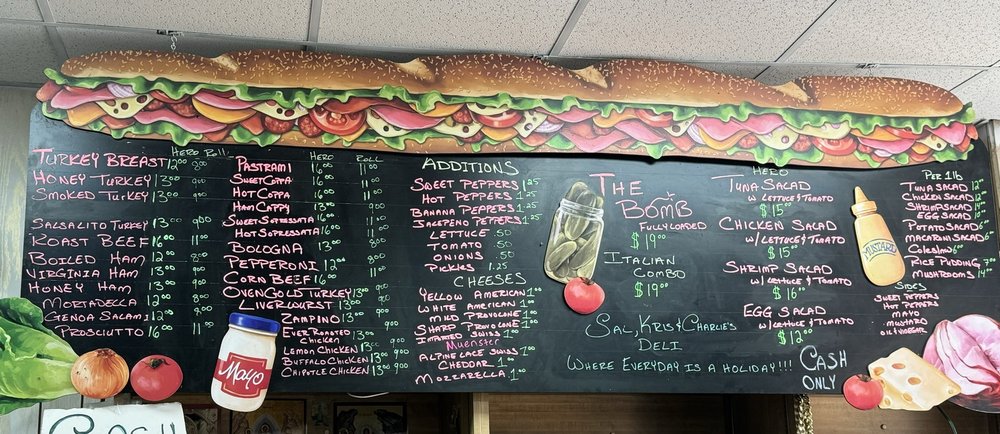 HERO ROLL
TURKEY BREAST 12.00 9.00
HONEY TURKEY 13.00 9.00
SMOKED TURKEY 13.00 9.00
SALSALITO TURKEY 13.00 9.00
ROAST BEEF 16.00 11.00
BOILED HAM 12.00 8.00
VIRGINIA HAM 13.00 9.00
HONEY HAM 13.00 9.00
MORTADELLA 12.00 8.00
GENOA SALAMI 12.00 9.00
PROSCIUTTO 16.00 11.00
HERO ROLL
PASTRAMI 16.00 11.00
SWEET COPPA 16.00 11.00
HOT COPPA 16.00 11.00
HAM CAPPY 13.00 9.00
SWEET SOPRESSATA 16.00 11.00
HOT SOPRESSATA 16.00 11.00
BOLOGNA 13.00 8.00
PEPPERONI 12.00 8.00
CORN BEEF 16.00 11.00
OVENGOLD TURKEY 13.00 9.00
LIVERWURST 13.00 9.00
ZAMPINO 13.00 9.00
EVER ROASTED
CHICKEN 13.00 9.00
LEMON CHICKEN 13.00 9.00
BUFFALO CHICKEN 13.00 9.00
CHIPOTLE CHICKEN 13.00 9.00
Mayo
ADDITIONS
SWEET PEPPERS 1.25
HOT PEPPERS 1.25
BANANA PEPPERS 1.25
JALEPEÑO PEPPERS 1.25
LETTUCE .50
TOMATO .50
ONIONS .50
PICKLES 1.25
CHEESES
YELLOW AMERICAN 1.00
WHITE AMERICAN 1.00
MILD PROVOLONE 1.00
SHARP PROVOLONE 1.00
IMPORTED SWISS 1.00
Muenster
ALPINE LACE SWISS 1.00
CHEDDAR 1.00
MOZZARELLA 1.00
THE
BOMB
FULLY LOADED
$19.00
ITALIAN
COMBO
$19.00
SAL, KRIS & CHARLIE'S
DELI.
WHERE EVERYDAY IS A HOLIDAY!!!
HERO
TUNA SALAD
W/ LETTUCE & TOMATO
$15.00
CHICKEN SALAD
W/ LETTUCE & TOMATO
$15.00
SHRIMP SALAD
W/ LETTUCE & TOMATO
$16.00
EGG SALAD
W/ LETTUCE & TOMATO
$12.00
CASH
ONLY
MUSTARD
PER 1lb
TUNA SALAD 12.00
CHICKEN SALAD 12.00
SHRIMP SALAD
EGG SALAD
POTATO SALAD
MACARONI SALAD
COLESLAW
RICE PUDDING
MUSHROOMS
SIDES
SWEET PEPPERS
HOT PEPPERS
MAYO
MUSTARD
OIL & VINEGAR
CASH